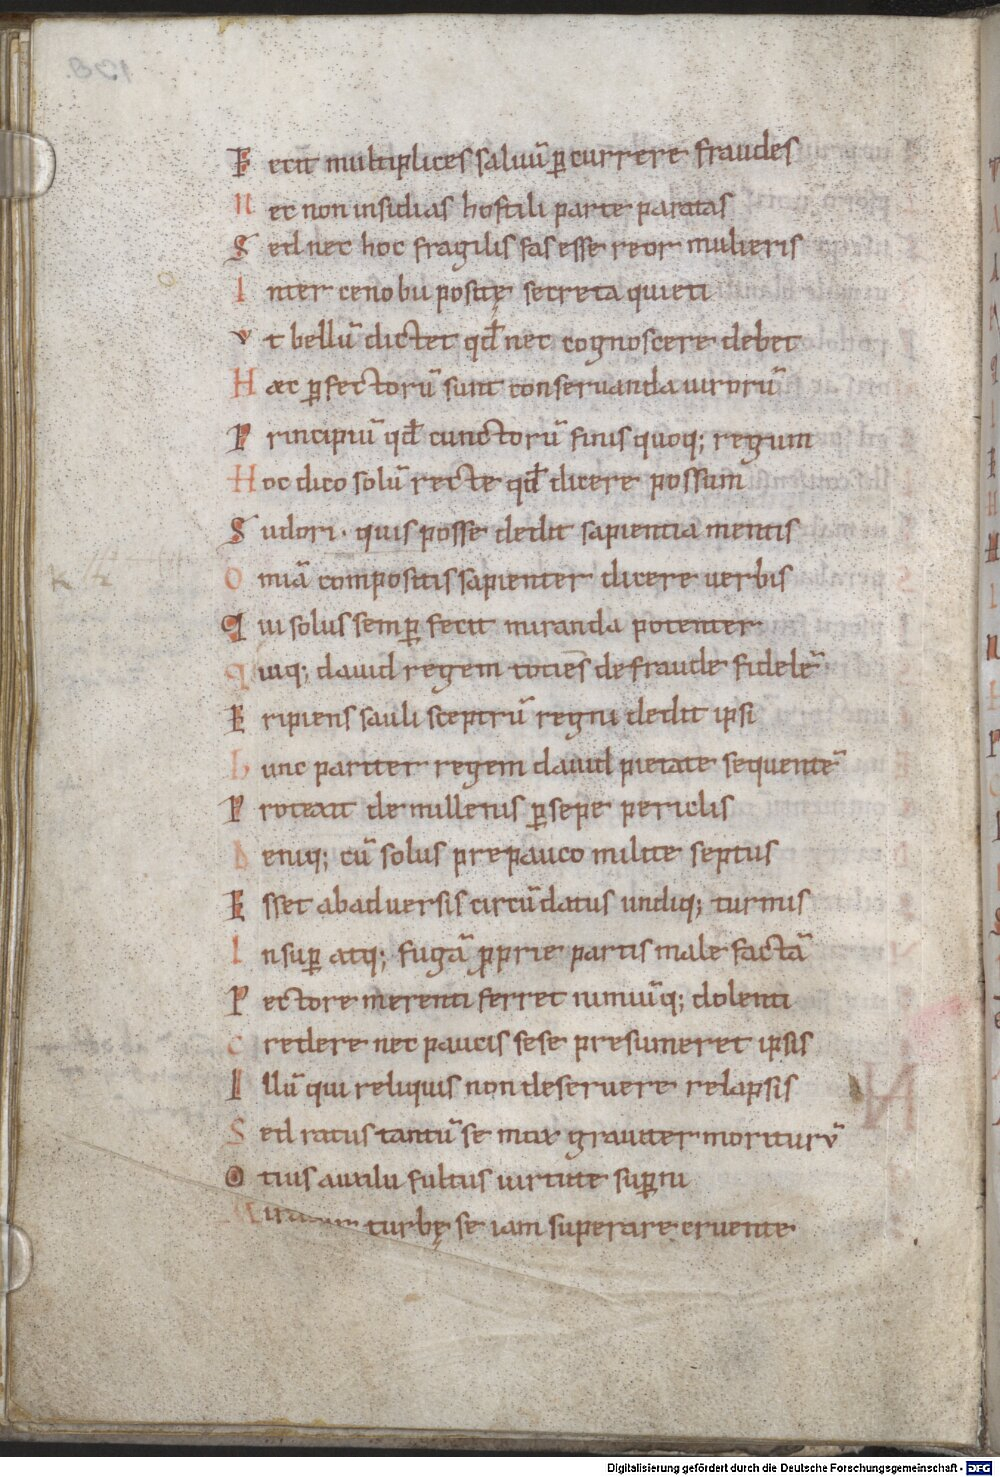 F ecit multiplices saluū ꝑcurrere fraudes
N ec non insidias hostili parte paratas
S ed nec hoc fragilis fas esse reor mulieris
I nter cenobii positę secreta quieti
V t bellū dictet qđ nec cognoscere debet
H æc ꝑfectorū sunt conseruanda uirorū
P rincipiū qđ cunctorū finis quoq; regum
H oc dico solū recte qđ dicere possum
S udori · quis posse dedit sapientia mentis
O mīa compositis sapienter dicere uerbis
Q ui solus semꝑ fecit miranda potenter
Q uiq; dauid regem tociēs de fraude fidelē
E ripiens sauli sceptrū regni dedit ipsi
h unc pariter regem dauid pietate sequentē
P rotexit de millenis ꝑsepe periclis
D eniq; cū solus pre pauco milite septus
E sset ab aduersis circūdatus undiq; turmis
I nsuꝑ atq; fugā ꝓprie partis male factā
P ectore merenti ferret nimiūq; dolenti
C redere nec paucis sese presumeret ipsis
I llū qui reliquis non deseruere relapsis
S ed ratus tantū se mox grauiter moriturū
O tius auxilii fultus uirtute suꝑni
turbę se iam superare cruente
Digitalisierung gefördert durch die Deutsche Forschungsgemeinschaft - DFG